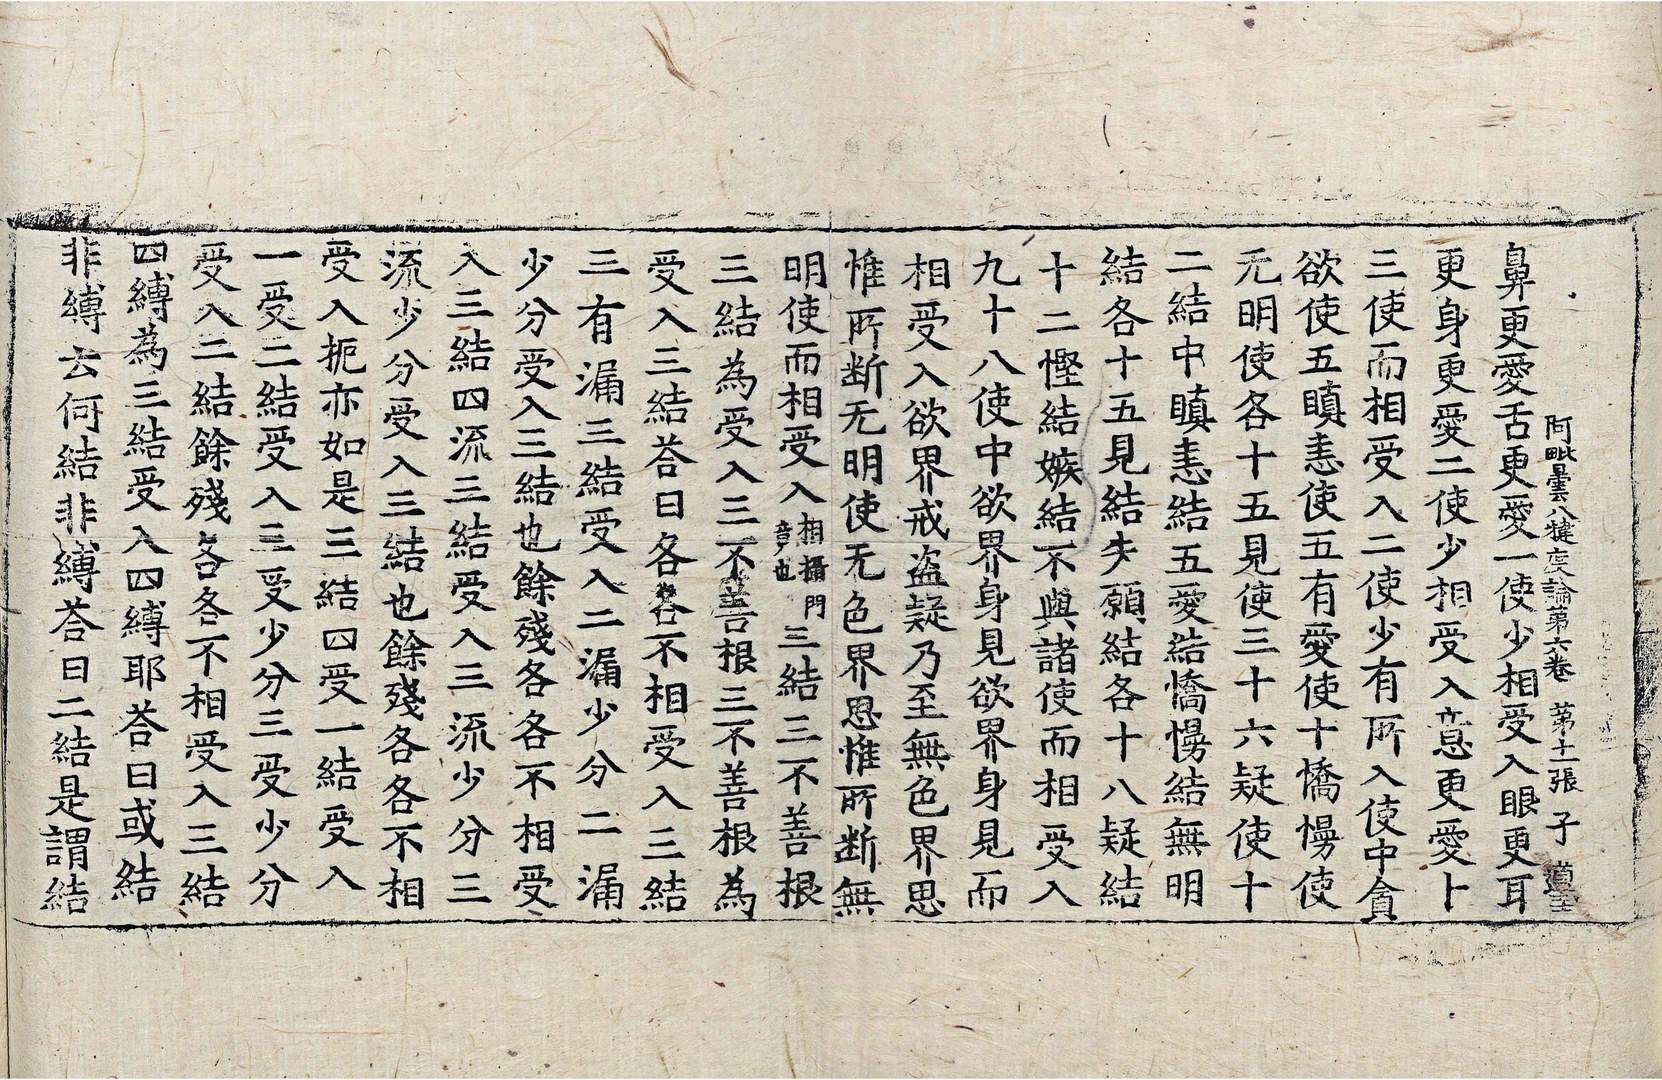 阿毗曇八犍度論第六卷　第十二張　子
鼻更愛舌更愛一使少相受入眼更耳
更身更愛二使少相受入意更愛卜
三使而相受入二使少有所入使中貪
欲使五瞋恚使五有愛使十憍慢使
无明使各十五見使三十六疑使十
二結中瞋恚結五愛結憍慢結無明
結各十五見結失願結各十八疑結
十二慳結嫉結不與諸使而相受入
九十八使中欲界身見欲界身見而
相受入欲界戒盜疑乃至無色界思
惟所断无明使无色界思惟所断無
明使而相受入相攝門竟也三結三不善根
三結為受入三不善根三不善根為
受入三結荅曰各各不相受入三結
三有漏三結受入二漏少分二漏
少分受入三結也餘殘各各不相受
入三結四流三結受入三流少分三
流少分受入三結也餘殘各各不相
受入扼亦如是三結四受一結受入
一受二結受入三受少分三受少分
受入二結餘殘各各不相受入三結
四縛為三結受入四縛耶荅曰或結
非縛云何結非縛荅曰二結是謂結